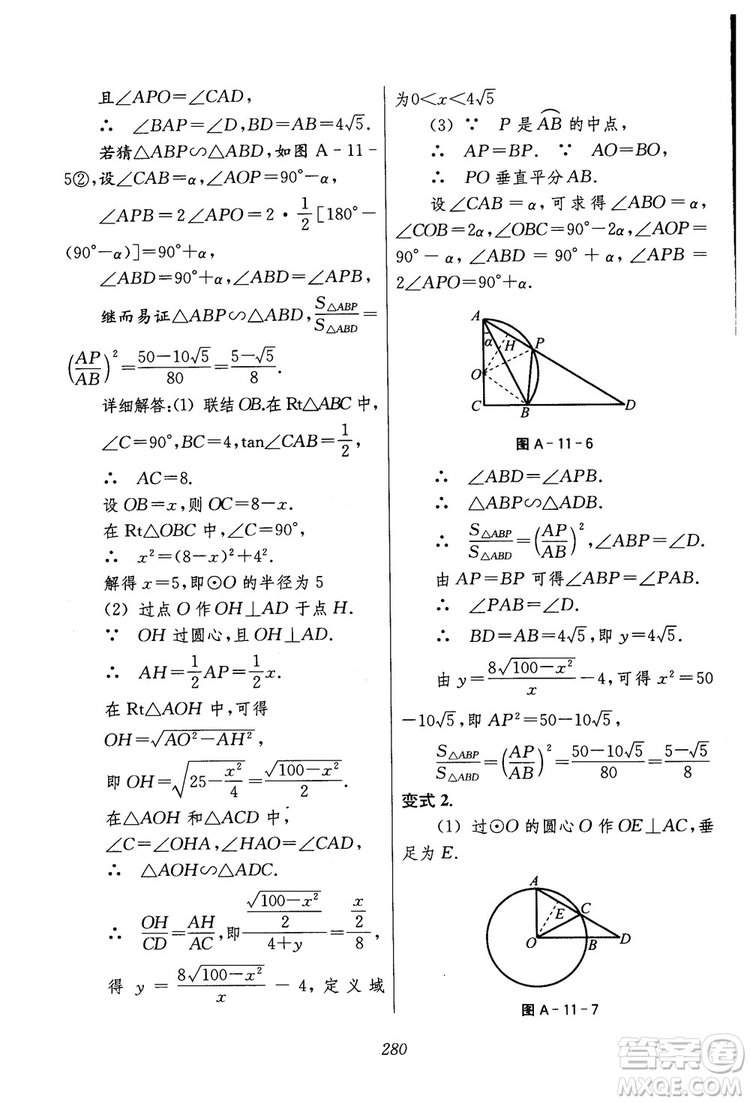 且∠APO=∠CAD,
∴ ∠BAP=∠D,BD=AB=4√5.
若猜△ABP∽△ABD,如图 A-11-
5②,设∠CAB=α,∠AOP=90°-α,
∠APB=2∠APO=2·1/2[180°-
(90°-α)]=90°+α,
∠ABD=90°+α,∠ABD=∠APB,
继而易证△ABP∽△ABD,S△ABP/S△ABD=
(AP/AB)²=(50-10√5)/80=(5-√5)/8.
详细解答:(1) 联结 OB.在 Rt△ABC 中,
∠C=90°,BC=4,tan∠CAB=1/2,
∴ AC=8.
设 OB=x,则 OC=8-x.
在 Rt△OBC 中,∠C=90°,
∴ x²=(8-x)²+4².
解得 x=5,即⊙O 的半径为 5
(2) 过点 O 作 OH⊥AD 于点 H.
∵ OH 过圆心,且 OH⊥AD.
∴ AH=1/2AP=x/2.
在 Rt△AOH 中,可得
OH=√(AO²-AH²),
即 OH=√(25-x²/4)=√(100-x²)/2.
在△AOH 和△ACD 中,
∠C=∠OHA,∠HAO=∠CAD,
∴ △AOH∽△ADC.
∴ OH/CD=AH/AC,即(√(100-x²)/2)/(4+y)=(x/2)/8,
得 y=8√(100-x²)/x-4,定义域
为0<x<4√5
(3) ∵ P 是AB⌒的中点,
∴ AP=BP. ∵ AO=BO,
∴ PO 垂直平分 AB.
设∠CAB=α,可求得∠ABO=α,
∠COB=2α,∠OBC=90°-2α,∠AOP=
90°-α,∠ABD=90°+α,∠APB=
2∠APO=90°+α.
A
α
H
P
O
C
B
D
图 A-11-6
∴ ∠ABD=∠APB.
∴ △ABP∽△ADB.
∴ S△ABP/S△ABD=(AP/AB)²,∠ABP=∠D.
由 AP=BP 可得∠ABP=∠PAB.
∴ ∠PAB=∠D.
∴ BD=AB=4√5,即 y=4√5.
由 y=8√(100-x²)/x-4,可得 x²=50
-10√5,即 AP²=50-10√5,
S△ABP/S△ABD=(AP/AB)²=(50-10√5)/80=(5-√5)/8
变式 2.
(1) 过⊙O 的圆心 O 作 OE⊥AC,垂
足为 E.
A
E
C
O
B
D
图 A-11-7
280
答案圈
MXQE.COM